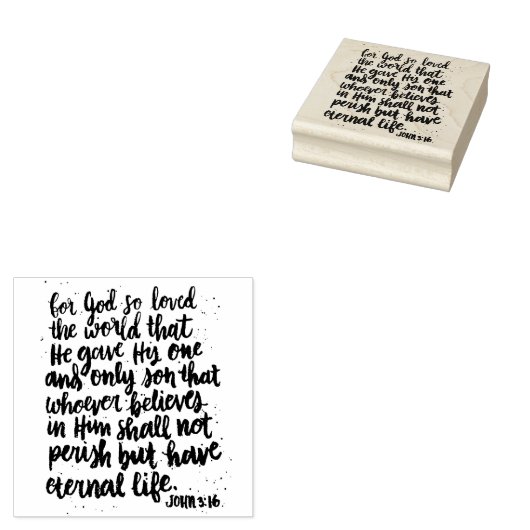 for God so loved
the world that
He gave His one
and only son that
whoever believes
in Him shall not
perish but have
eternal life.
JOHN 3:16
for God so loved
the world that
He gave His one
and only son that
whoever believes
in Him shall not
perish but have
eternal life.
JOHN 3:16